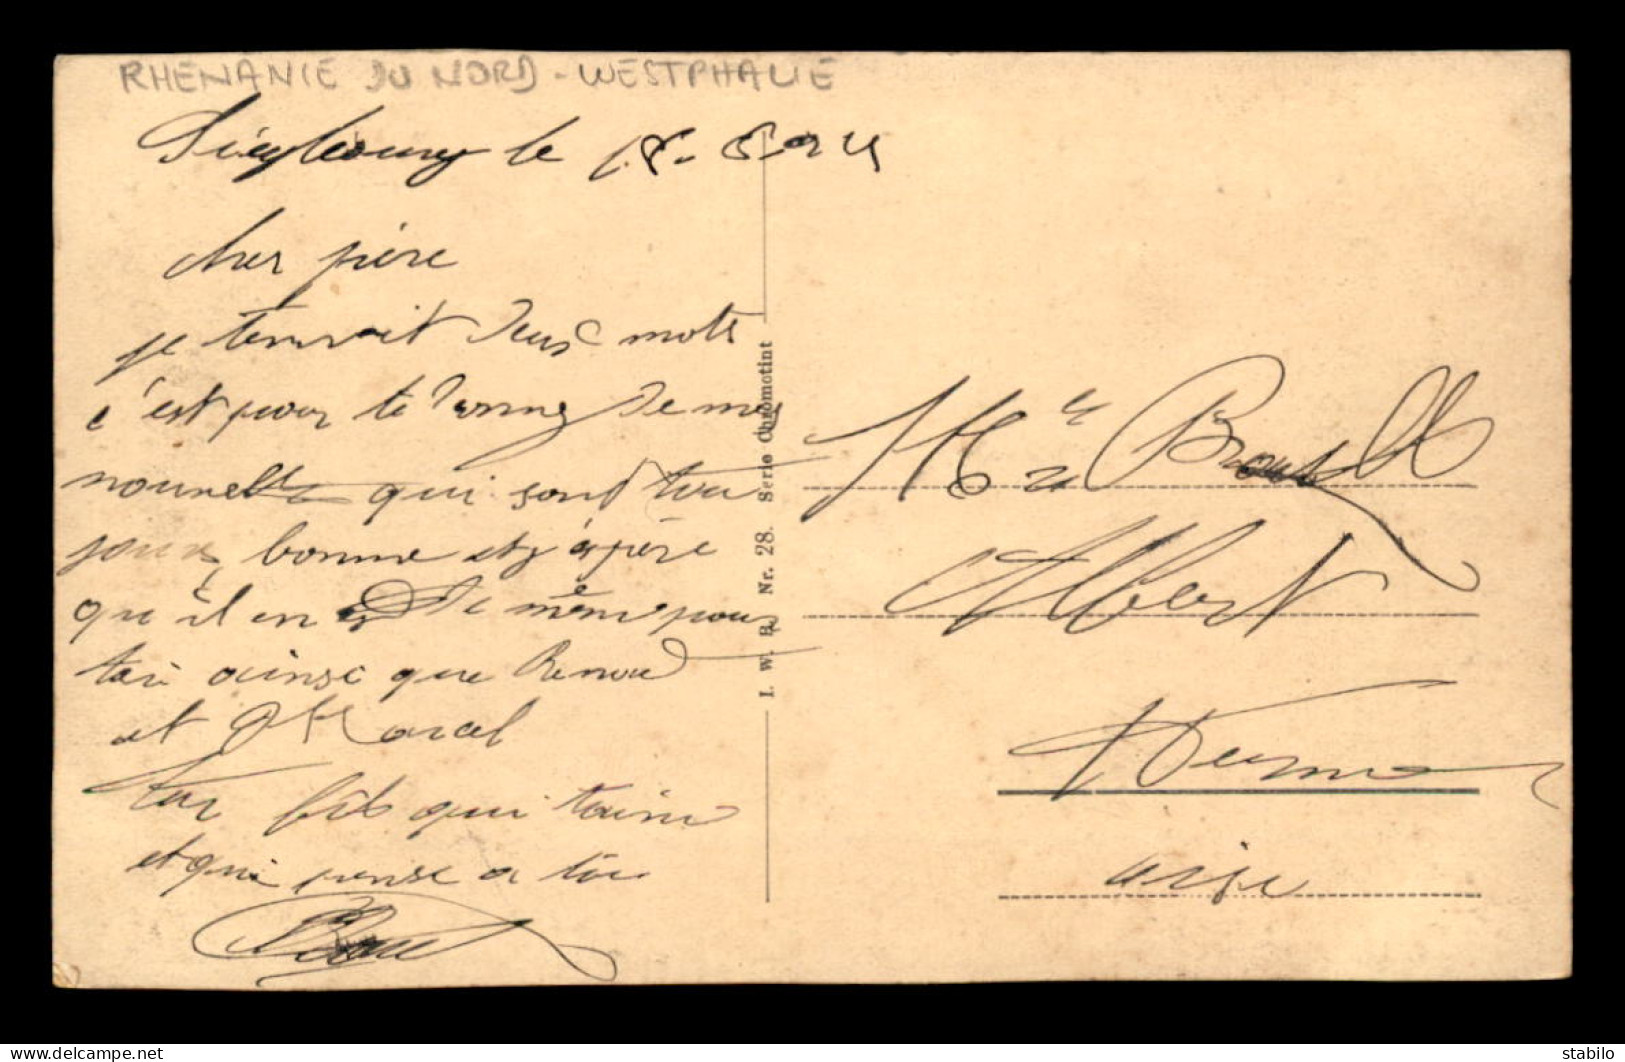 RHENANIE DU NORD - WESTPHALIE
Siegbourg le 18-5-24
cher père
je tenvoit deux mots
c'est pour te donne de mes
nouvelle qui sont tou
jours bonne et j'éspére
que il en de même pour
toi ainsi que Renou
et Marcel
ton fils qui taime
et qui pense a toi
I. W. B. Nr. 28. Serie Chromotint
Albert
aisne
delcampe.net
stabilo